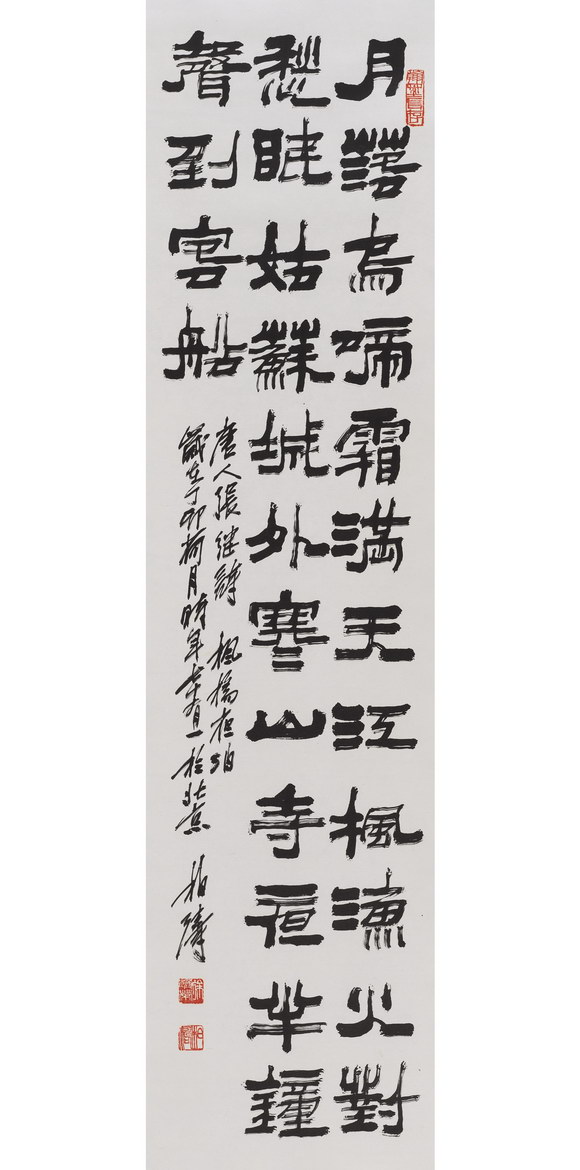 月落烏啼霜滿天江楓漁火對
愁眠姑蘇城外寒山寺夜半鐘
聲到客船
唐人張继詩 楓橋夜泊
歲在丁卯月時年七十有一於北京 柏濤